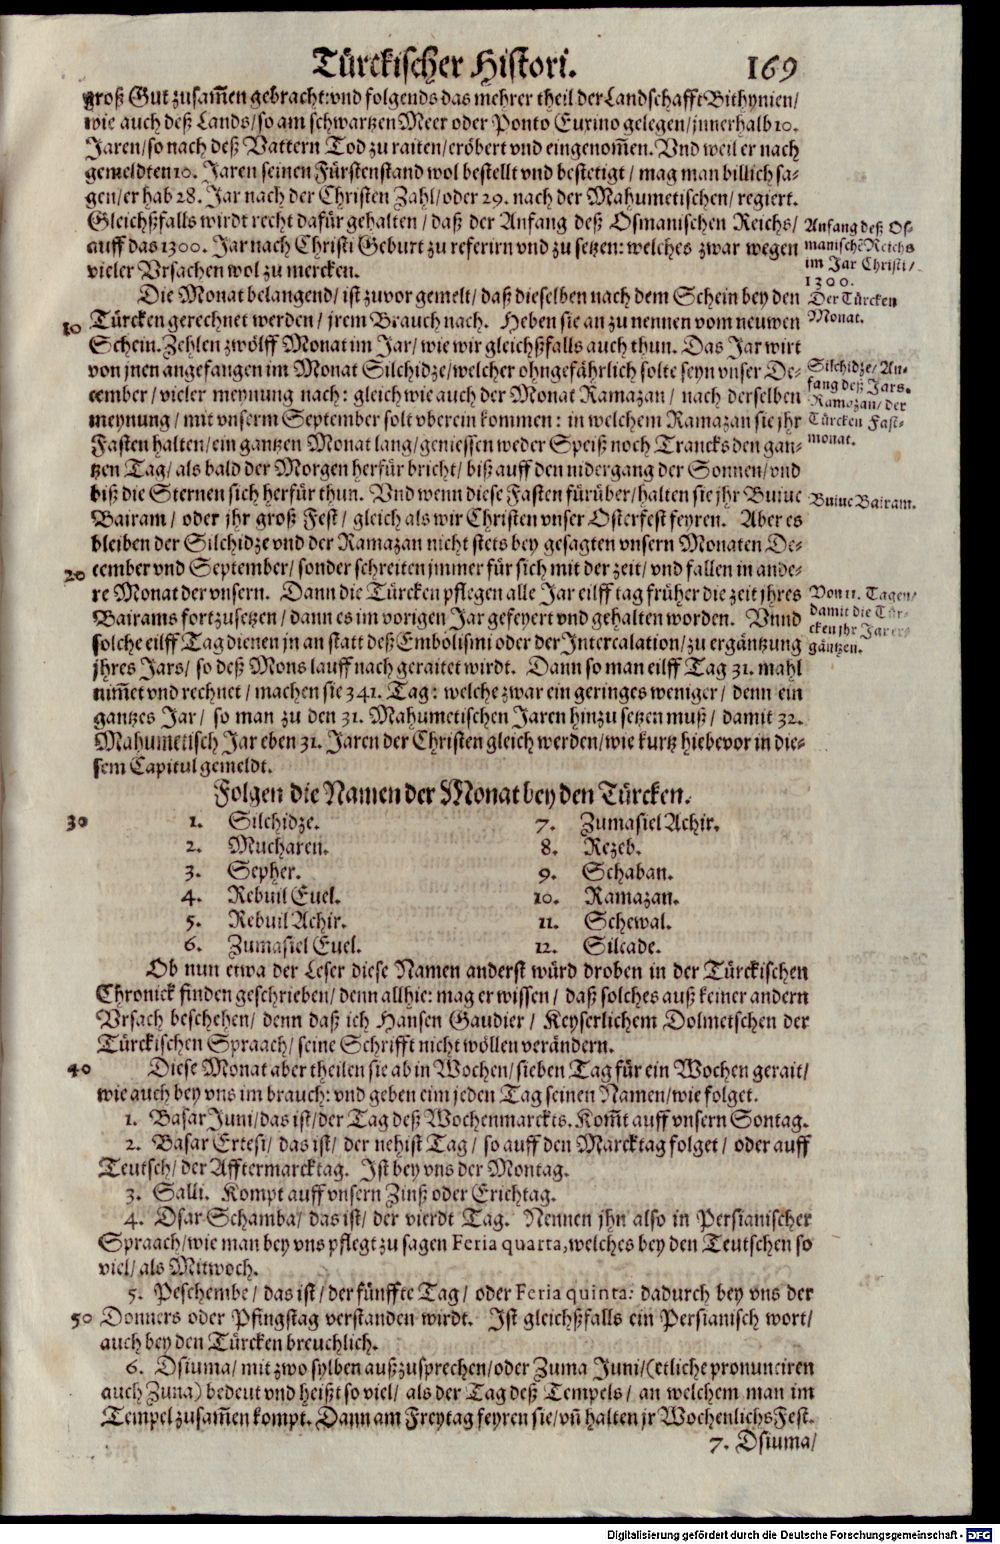 Türckischer Histori. 169
groß Gut zusam̄en gebracht: vnd folgends das mehrer theil der Landschafft Bithynien/
wie auch deß Lands/ so am schwartzen Meer oder Ponto Euxino gelegen/ jnnerhalb 10.
Jaren/ so nach deß Vattern Tod zu raiten/ eröbert vnd eingenom̄en. Vnd weil er nach
gemeldten 10. Jaren seinen Fürstenstand wol bestellt vnd bestetigt/ mag man billich sa-
gen/ er hab 28. Jar nach der Christen Zahl/ oder 29. nach der Mahumetischen/ regiert.
Gleichßfalls wirdt recht dafür gehalten/ daß der Anfang deß Osmanischen Reichs/
auff das 1300. Jar nach Christi Geburt zu referirn vnd zu setzen: welches zwar wegen
vieler Vrsachen wol zu mercken.
Anfang deß Os-
manischē Reichs
im Jar Christi/
1300.
Die Monat belangend/ ist zuvor gemelt/ daß dieselben nach dem Schein bey den
10 Türcken gerechnet werden/ jrem Brauch nach. Heben sie an zu nennen vom neuwen
Schein. Zehlen zwölff Monat im Jar/ wie wir gleichßfalls auch thun. Das Jar wirt
von jnen angefangen im Monat Silchidze/ welcher ohngefährlich solte seyn vnser De-
cember/ vieler meynung nach: gleich wie auch der Monat Ramazan/ nach derselben
meynung/ mit vnserm September solt vberein kommen: in welchem Ramazan sie jhr
Fasten halten/ ein gantzen Monat lang/ geniessen weder Speiß noch Trancks den gan-
tzen Tag/ als bald der Morgen herfür bricht/ biß auff den nidergang der Sonnen/ vnd
biß die Sternen sich herfür thun. Vnd wenn diese Fasten fürüber/ halten sie jhr Buiuc
Bairam/ oder jhr groß Fest/ gleich als wir Christen vnser Osterfest feyren. Aber es
bleiben der Silchidze vnd der Ramazan nicht stets bey gesagten vnsern Monaten De-
20 cember vnd September/ sonder schreiten jmmer für sich mit der zeit/ vnd fallen in ande-
re Monat der vnsern. Dann die Türcken pflegen alle Jar eilff tag früher die zeit jhres
Bairams fortzusetzen/ dann es im vorigen Jar gefeyert vnd gehalten worden. Vnnd
solche eilff Tag dienen jn an statt deß Embolismi oder der Intercalation/ zu ergäntzung
jhres Jars/ so deß Mons lauff nach geraitet wirdt. Dann so man eilff Tag 31. mahl
nim̄et vnd rechnet/ machen sie 341. Tag: welche zwar ein geringes weniger/ denn ein
gantzes Jar/ so man zu den 31. Mahumetischen Jaren hinzu setzen muß/ damit 32.
Mahumetisch Jar eben 31. Jaren der Christen gleich werden/ wie kurtz hiebevor in die-
sem Capitul gemeldt.
Der Türcken
Monat.
Silchidze/ An-
fang deß Jars.
Ramazan/ der
Türcken Fast-
monat.
Buiuc Bairam.
Von 11. Tagen/
damit die Tür-
cken jhr Jar er-
gäntzen.
Folgen die Namen der Monat bey den Türcken.
30 1. Silchidze. 7. Zumasiel Achir.
2. Mucharen. 8. Rezeb.
3. Sepher. 9. Schaban.
4. Rebuil Euel. 10. Ramazan.
5. Rebuil Achir. 11. Schewal.
6. Zumasiel Euel. 12. Silcade.
Ob nun etwa der Leser diese Namen anderst würd droben in der Türckischen
Chronick finden geschrieben/ denn allhie: mag er wissen/ daß solches auß keiner andern
Vrsach beschehen/ denn daß ich Hansen Gaudier/ Keyserlichem Dolmetschen der
Türckischen Spraach/ seine Schrifft nicht wöllen verändern.
40 Diese Monat aber theilen sie ab in Wochen/ sieben Tag für ein Wochen gerait/
wie auch bey vns im brauch: vnd geben eim jeden Tag seinen Namen/ wie folget.
1. Basar Juni/ das ist/ der Tag deß Wochenmarckts. Kom̄t auff vnsern Sontag.
2. Basar Ertesi/ das ist/ der nehist Tag/ so auff den Marcktag folget/ oder auff
Teutsch/ der Afftermarcktag. Ist bey vns der Montag.
3. Salli. Kompt auff vnsern Zinß oder Erichtag.
4. Dsar Schamba/ das ist/ der vierdt Tag. Nennen jhn also in Persianischer
Spraach/ wie man bey vns pflegt zu sagen Feria quarta, welches bey den Teutschen so
viel/ als Mitwoch.
5. Peschembe/ das ist/ der fünffte Tag/ oder Feria quinta: dadurch bey vns der
50 Donners oder Pfingstag verstanden wirdt. Ist gleichßfalls ein Persianisch wort/
auch bey den Türcken breuchlich.
6. Dsiuma/ mit zwo sylben außzusprechen/ oder Zuma Juni/ (etliche pronunciren
auch Zuna) bedeut vnd heißt so viel/ als der Tag deß Tempels/ an welchem man im
Tempel zusam̄en kompt. Dann am Freytag feyren sie/ vn̄ halten jr Wochenlichs Fest.
7. Dsiuma/
Digitalisierung gefördert durch die Deutsche Forschungsgemeinschaft - DFG